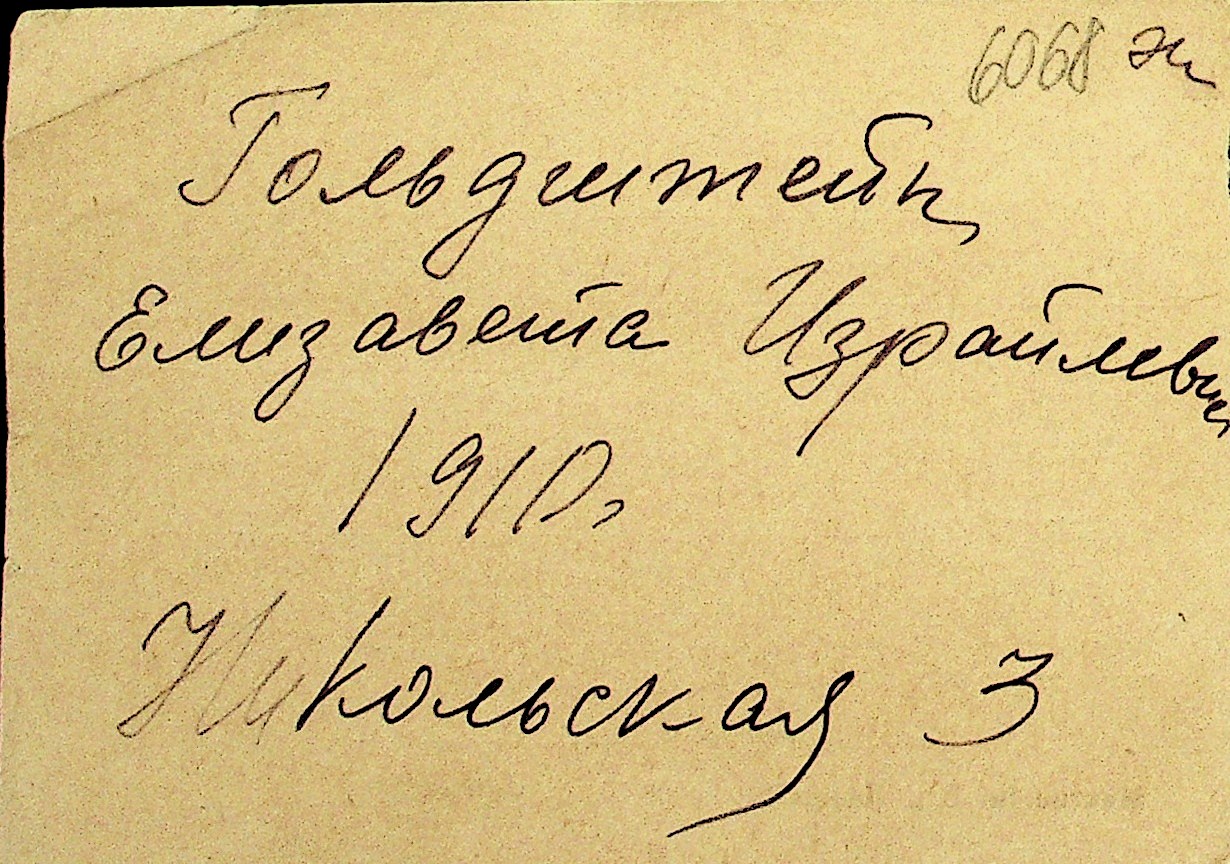 6068 ж
Гольдштейн
Елизавета Израйлевна
1910 г
Никольская 3